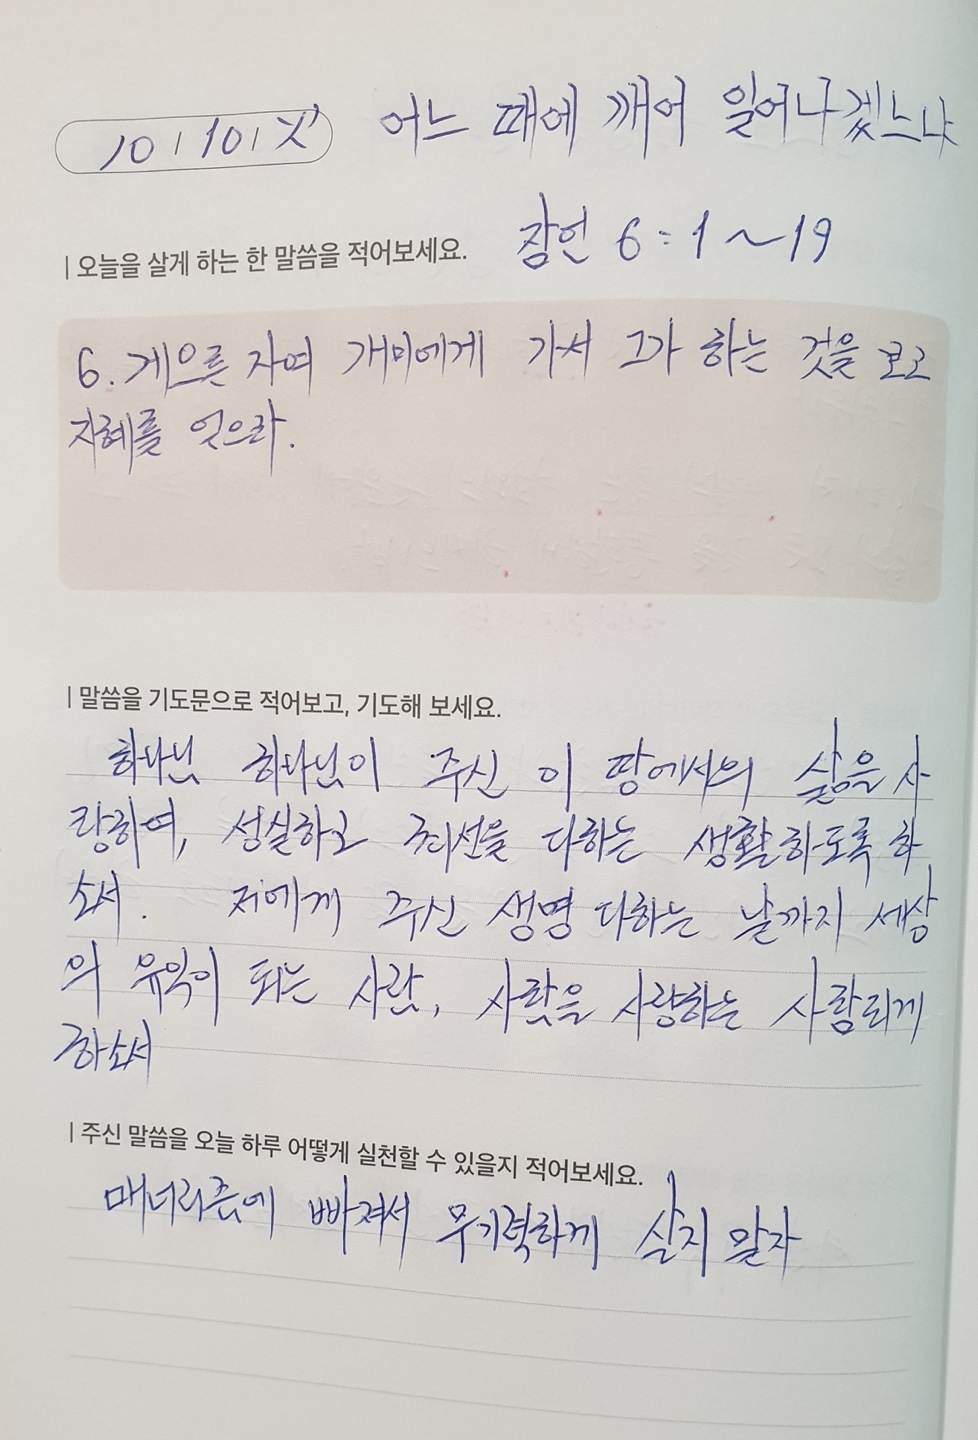 10 | 10 | 어느 때에 깨어 일어나겠느냐
잠언 6:1~19
| 오늘을 살게 하는 한 말씀을 적어보세요.
6. 게으른 자여 개미에게 가서 그가 하는 것을 보고
지혜를 얻으라.
| 말씀을 기도문으로 적어보고, 기도해 보세요.
하나님 하나님이 주신 이 땅에서의 삶을 사
랑하여, 성실하고 최선을 다하는 생활하도록 하
소서. 저에게 주신 생명 다하는 날까지 세상
의 유익이 되는 사람, 사람을 사랑하는 사람되게
하소서
| 주신 말씀을 오늘 하루 어떻게 실천할 수 있을지 적어보세요.
매너리즘에 빠져서 무기력하게 살지 말자